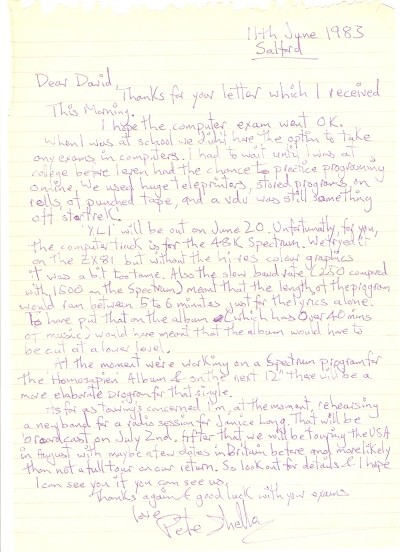 11th June 1983
Salford
Dear David,
Thanks for your letter which I received
This Morning.
I hope the computer exam went OK.
When I was at school we didn't have the option to take
any exams in computers. I had to wait until I was at
college before I even had the chance to practice programming
online. We used huge teleprinters, stored programs on
rolls of punched tape, and a vdu was still something
off startrek.
'XL1' will be out on June 20. Unfortunatly, for you,
the computer track is for the 48K Spectrum. We tryed it
on the ZX81 but without the hi res colour graphics
it was a bit too tame. Also the slow baud rate (250 compared
with 1500 on the Spectrum) meant that the length of the program
would run between 5 to 6 minutes just for the lyrics alone.
To have put that on the album (which has over 40 mins
of music) would have meant that the album would have to
be cut at a lower level.
At the moment we're working on a Spectrum program for
the Homosapien Album & on the next 12" there will be a
more elaborate program for that single.
As far as touring's concerned I'm, at the moment, rehearsing
a new band for a radio session for Janice Long. That will be
broadcast on July 2nd. After that we will be touring the USA
in August with maybe a few dates in Britain before and more likely
than not a full tour on our return. So look out for details & I hope
I can see you if you can see us,
Thanks again & good luck with your exams
love
Pete Shelley